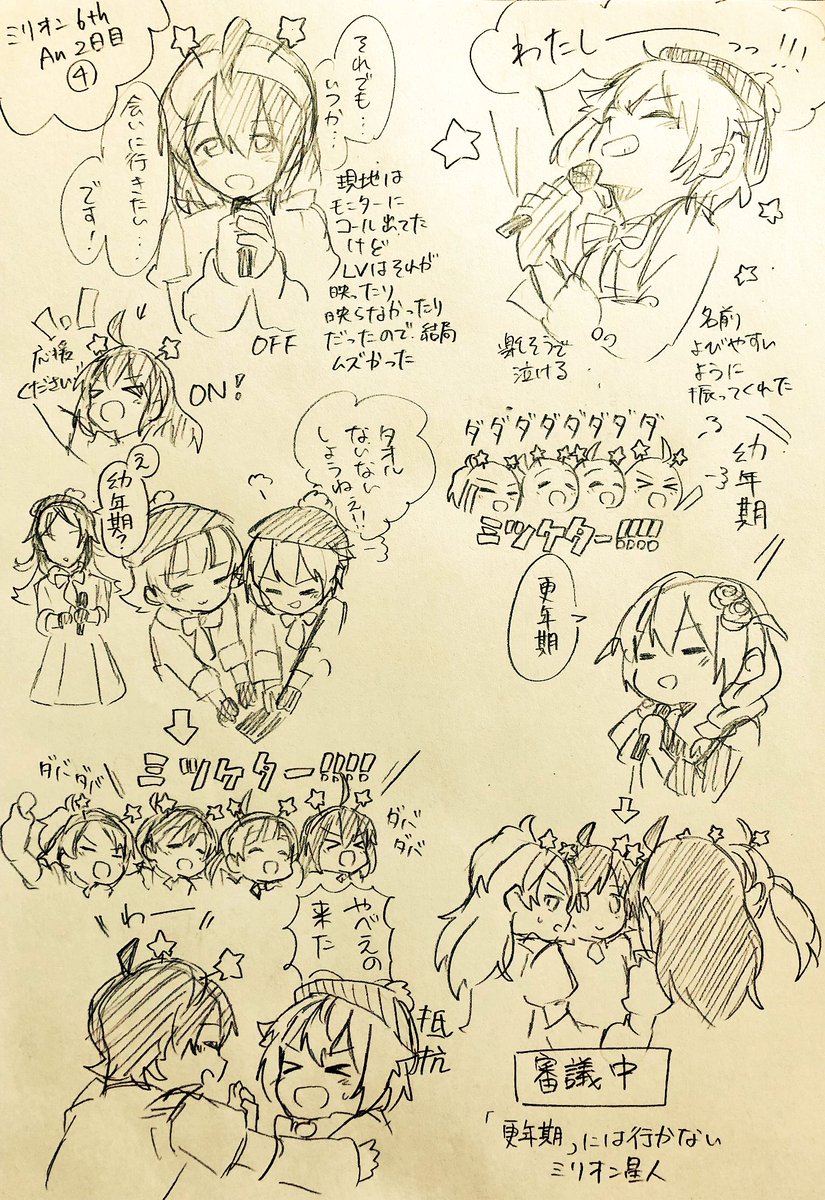 ミリオン6th
Au 2日目
④
それでも…
いつか…
会いに行きたい…
です!
OFF
現地は
モニターに
コール出てた
けど
LVはそれが
映ったり
映らなかったり
だったので、結局
ムズかった
わたしーーっっ!!!
楽しそうで
泣ける
名前
よびやすい
ように
振ってくれた
応援
ください!
ON!
ダダダダダダダダ
ミツケター!!!!
幼年期
更年期
え
幼年期?
タオル
ないない
しようねえ!!
ミツケター!!!!
ダバダバ
ダバ
ダバ
わー
やべえの
来た
抵抗
審議中
「更年期」には行かない
ミリオン星人